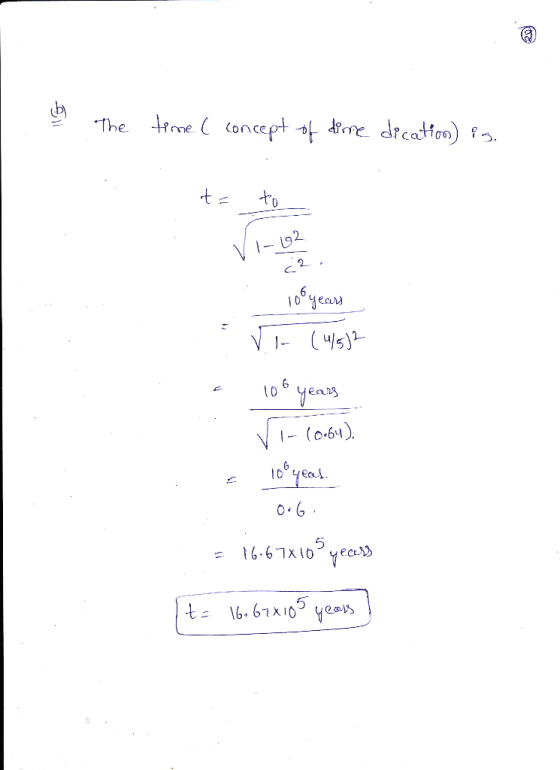 ②
(b)
The time ( concept of dime dication) is.
t = t₀ / √(1 - v²/c²).
= 10⁶ years / √(1 - (4/5)²
= 10⁶ years / √(1 - (0.64).
= 10⁶ yeas. / 0.6.
= 16.67x10⁵ years
t = 16.67x10⁵ years